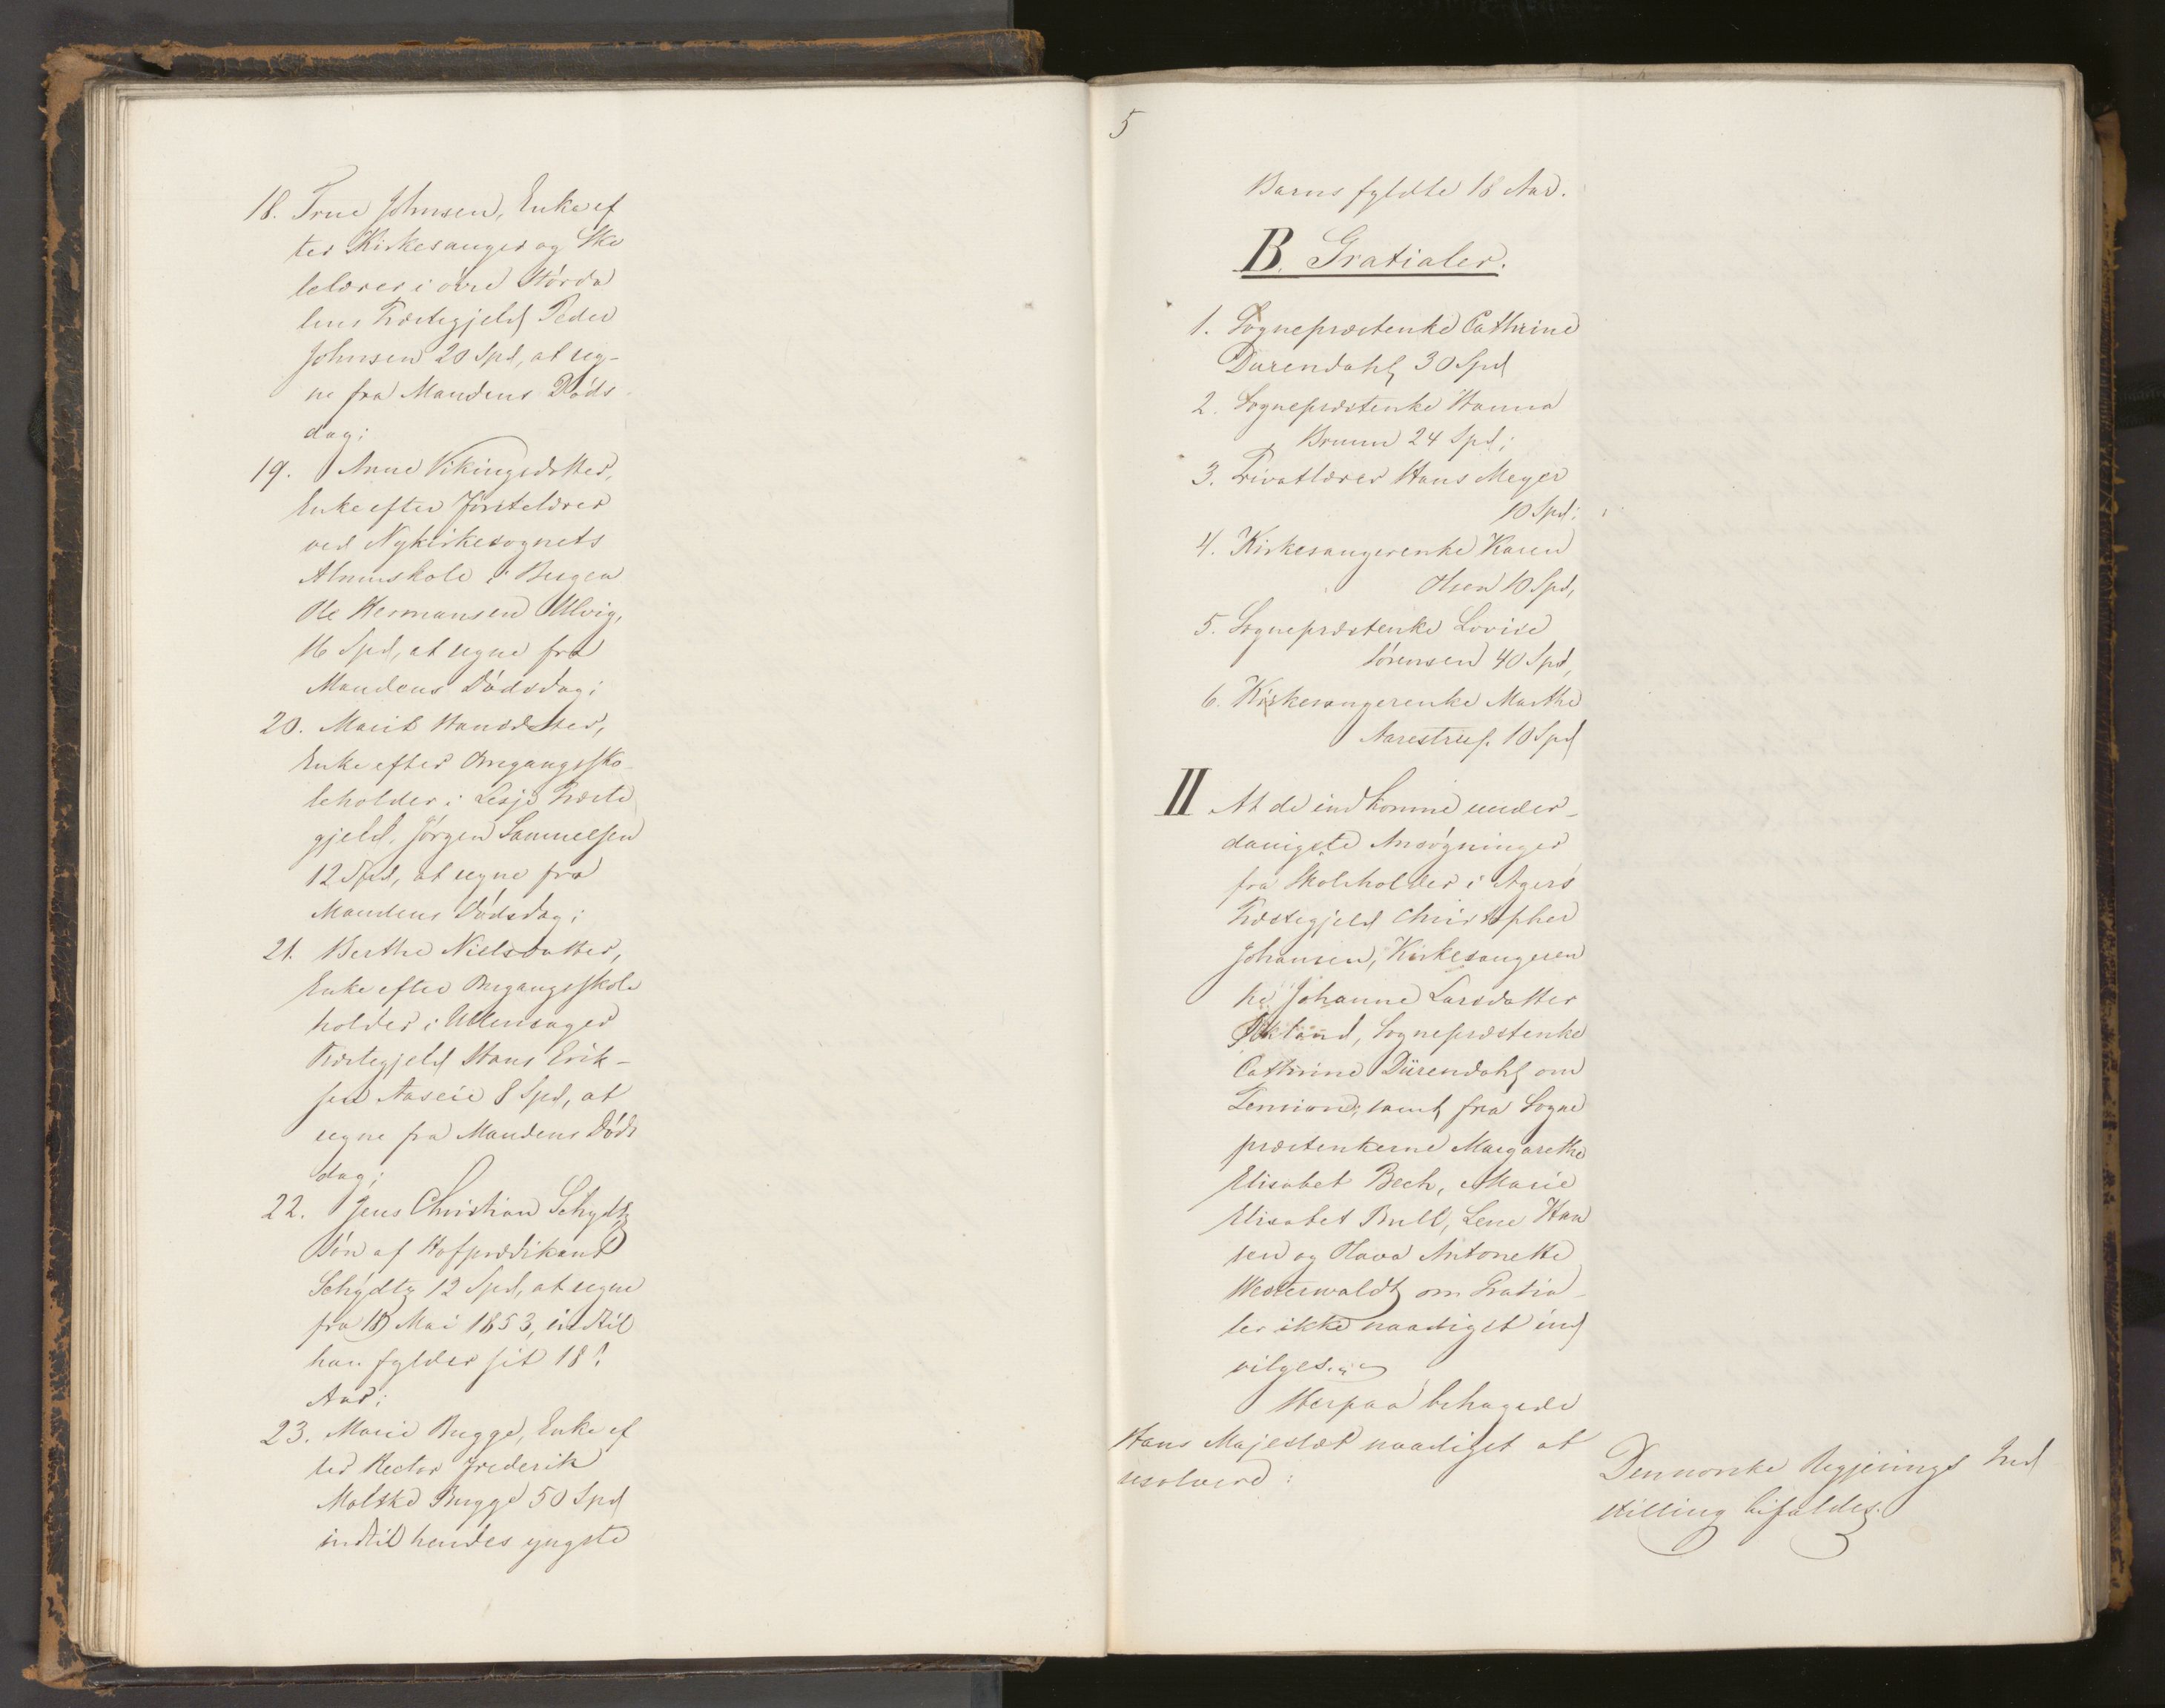 18. True Johnsen, Enke ef
ter Kirkesanger og Sko
lelærer i övre Stórda
lens Præstegjeld Peder
Johnsen 20 Spd, at reg-
ne fra Mandens Döds
dag;
19. Anne Vikingsdatter,
Enke efter Förstelærer
ved Nykirkesognets
Almuskole i Bergen
Ole Hermansen Ulvig,
16 Spd, at regne fra
Mandens Dödsdag;
20. Marit Hansdatter,
Enke efter Omgangssko
leholder i Lesje Præste
gjeld, Jörgen Samuelsen
12 Spd, at regne fra
Mandens Dödsdag;
21. Berthe Nielsdatter,
Enke efter Omgangsskole
holder i Ullensager
Præstegjeld Hans Erik-
sen Aaseie 8 Spd, at
regne fra Mandens Döds
dag;
22. Jens Christian Schydtz
Sön af Hofprædikant
Schydtz 12 Spd, at regne
fra 18 Mai 1853, indtil
han fylder sit 18de
Aar;
23. Marie Bugge, Enke ef
ter Rector Frederik
Moltke Bugge 50 Spd
indtil hendes yngste
5
Barns fyldte 18 Aar.
B. Gratialer.
1. Sognepræstenke Cathrine
Dürendahl, 30 Spd
2. Sognepræstenke Hanna
Bruun 24 Spd;
3. Privatlærer Hans Meyer
10 Spd;
4. Kirkesangerenke Karen
Olsen 10 Spd,
5. Sognepræstenke Lovise
Sörensen 40 Spd,
6. Kirkesangerenke Marthe
Aarestrup 10 Spd
II At de indkomne under-
danigste Ansögninger
fra Skoleholder i Agers
Præstegjeld Christopher
Johansen, Kirkesangeren
ke Johanne Larsdatter
Økland, Sognepræstenke
Cathrine Dürendahl om
Pension, samt fra Sogne
præstenkerne Margarethe
Elisabet Bech, Marie
Elisabet Bull, Lene Han
sen og Olava Antonette
Westerwaldt om Gratia-
ler ikke naadigst ind
vilges.
Herpaa behagede
Hans Majestæt naadigst at
resolvere:
Den norske Regjerings Ind
stilling bifaldes.